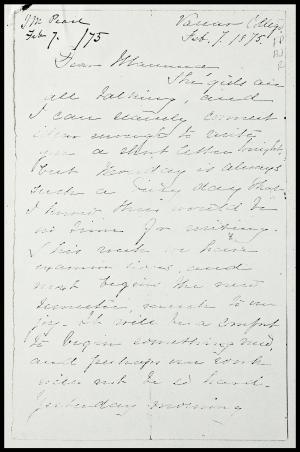 J.M. Pease
Feb 7. /75
Vassar College
Feb. 7. 1875.
Dear Mamma
The girls are
all talking, and
I can scarcely connect
ideas enough to write
you a short letter tonight,
but Monday is always
such a busy day that
I know there would be
no time for writing.
This week we have
examinations, and
next begins the new
semester, much to our
joy. It will be a comfort
to begin something new,
and perhaps our work
will not be so hard.
Yesterday morning